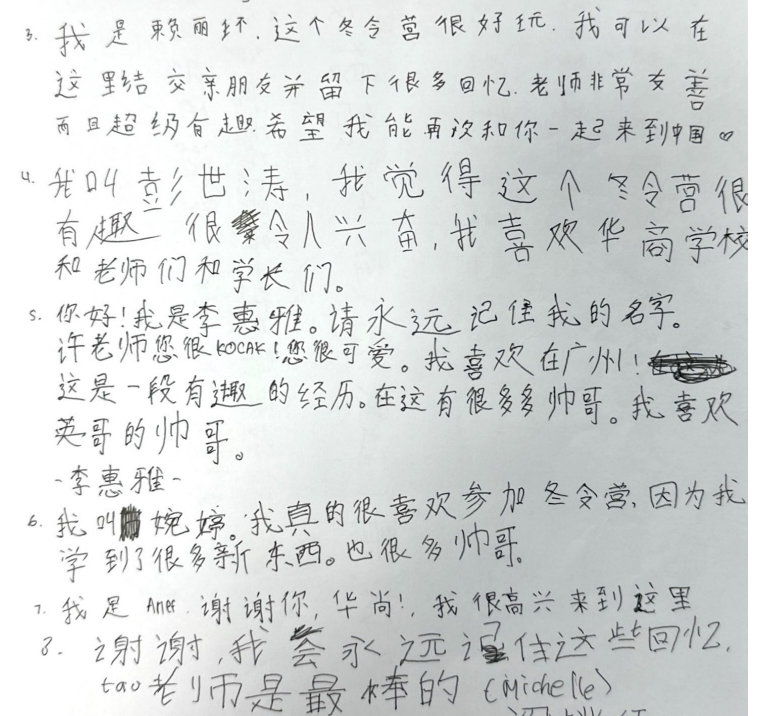 3. 我是赖丽环.这个冬令营很好玩.我可以在
这里结交亲朋友并留下很多回忆.老师非常友善
而且超级有趣.希望我能再次和你一起来到中国♡
4. 我叫彭世涛,我觉得这个冬令营很
有趣 很令人兴奋,我喜欢华商学校
和老师们和学长们。
5. 你好!我是李惠雅。请永远记住我的名字。
许老师您很KOCAK!您很可爱。我喜欢在广州!
这是一段有趣的经历。在这有很多多帅哥。我喜欢
英哥的帅哥。
-李惠雅-
6. 我叫婉婷。我真的很喜欢参加冬令营,因为我
学到了很多新东西。也很多帅哥.
7. 我是 谢谢你,华尚!,我很高兴来到这里
8. 谢谢,我会永远记住这些回忆.
tao老师是最棒的 (Michelle)